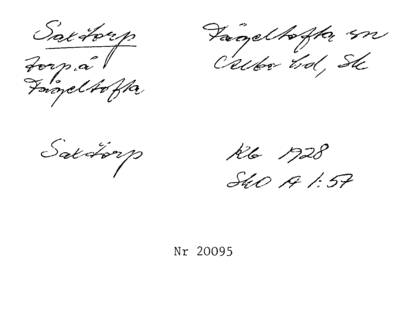 Saxtorp
torp å
Fågeltofta
Fågeltofta sn
Albo hd, Sk
Saxtorp
Rb 1928
SkO A 1:57
Nr 20095